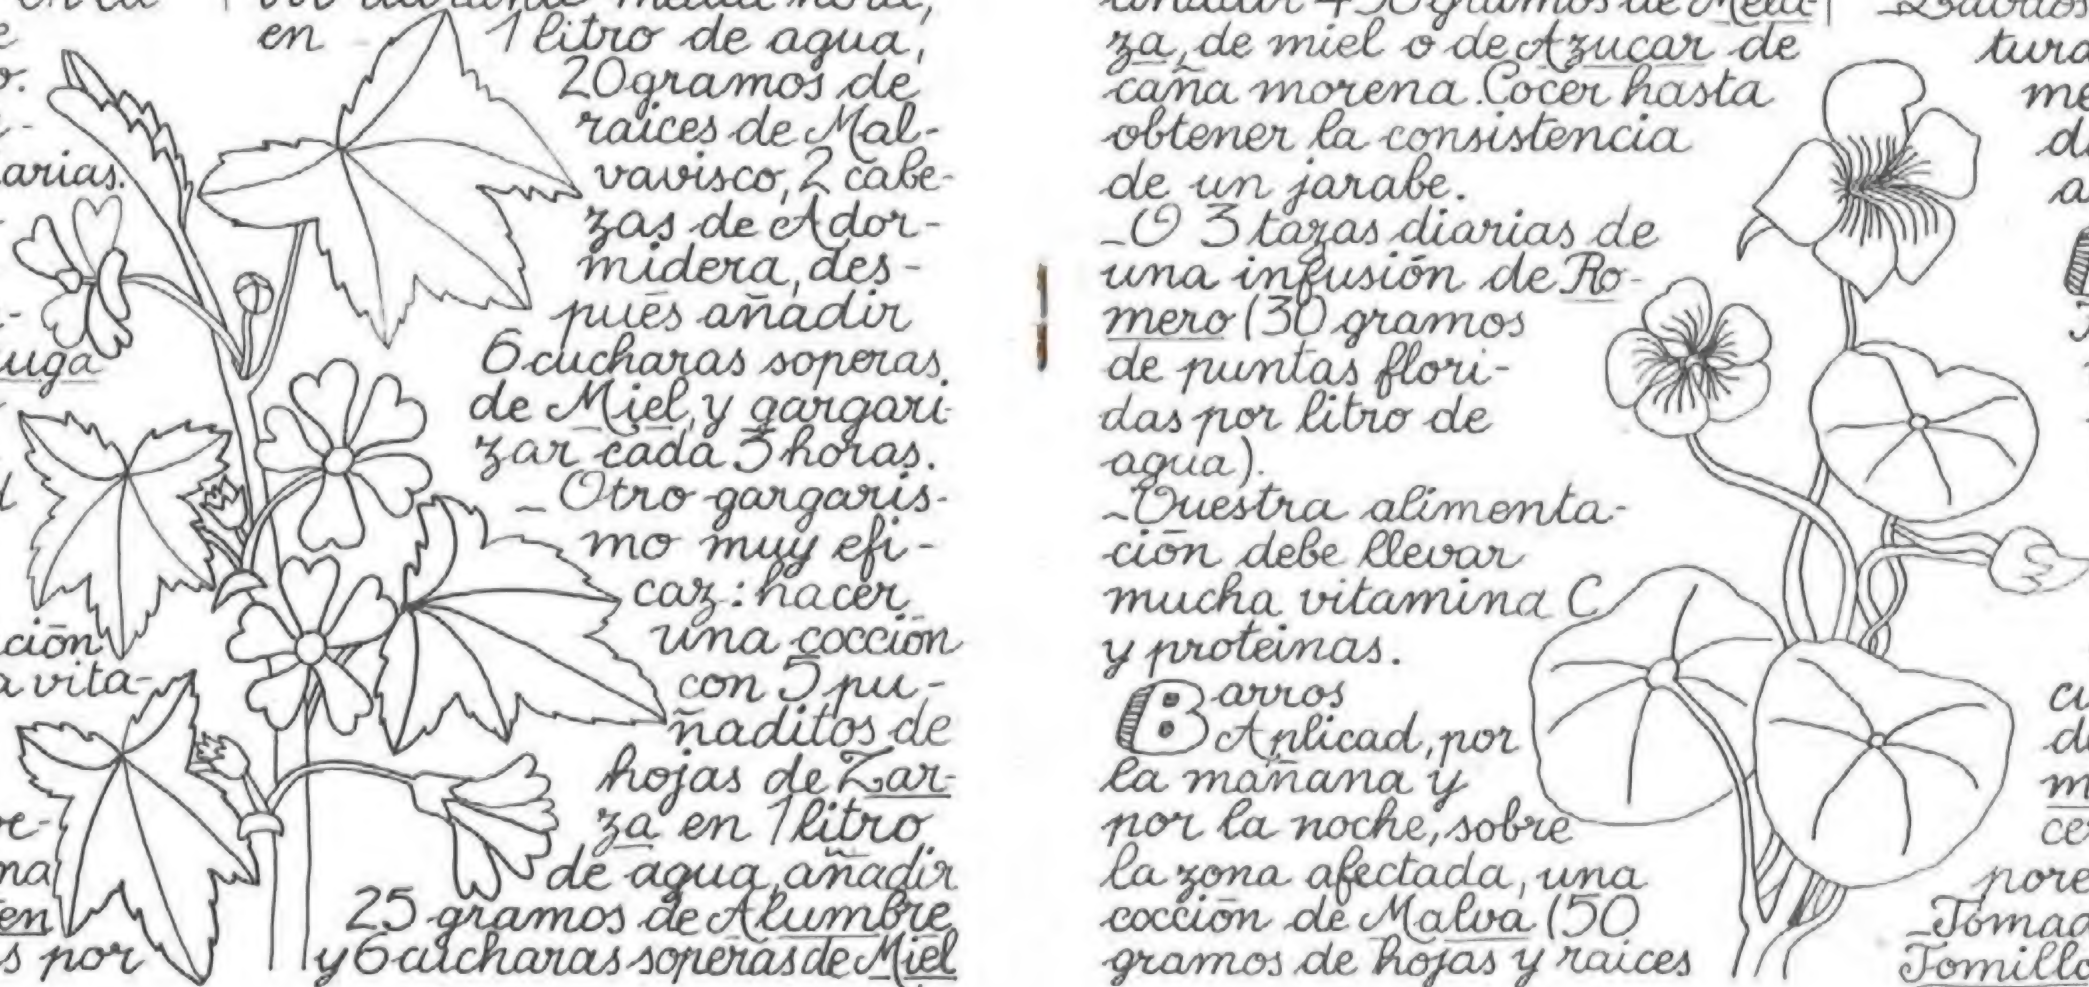 arias.
uga
ción
a vita-
en
s por
durante media hora,
en 1 litro de agua,
20 gramos de
raices de Mal-
vavisco, 2 cabe-
zas de Ador-
midera, des-
pués añadir
6 cucharas soperas
de Miel, y gargari-
zar cada 3 horas.
_ Otro gargaris-
mo muy efi-
caz: hacer
una cocción
con 5 pu-
ñaditos de
hojas de Zar-
za en 1 litro
de agua, añadir
25 gramos de Alumbre
y 6 cucharas soperas de Miel
450 gramos de Mela-
za, de miel o de Azucar de
caña morena. Cocer hasta
obtener la consistencia
de un jarabe.
_O 3 tazas diarias de
una infusión de Ro-
mero (30 gramos
de puntas flori-
das por litro de
agua).
_Vuestra alimenta-
ción debe llevar
mucha vitamina C
y proteinas.
Barros
Aplicad, por
la mañana y
por la noche, sobre
la zona afectada, una
cocción de Malva (50
gramos de hojas y raices
tura
me
pore
_Tomad
Tomillo